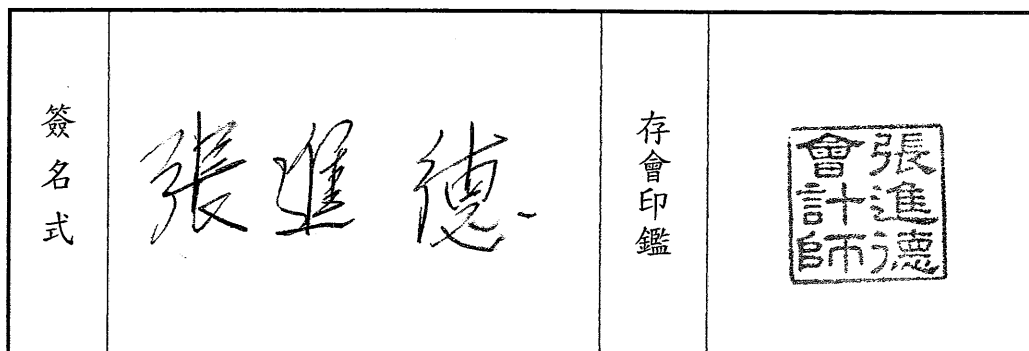 簽名式
張進德
存會印鑑
張進德
會計師